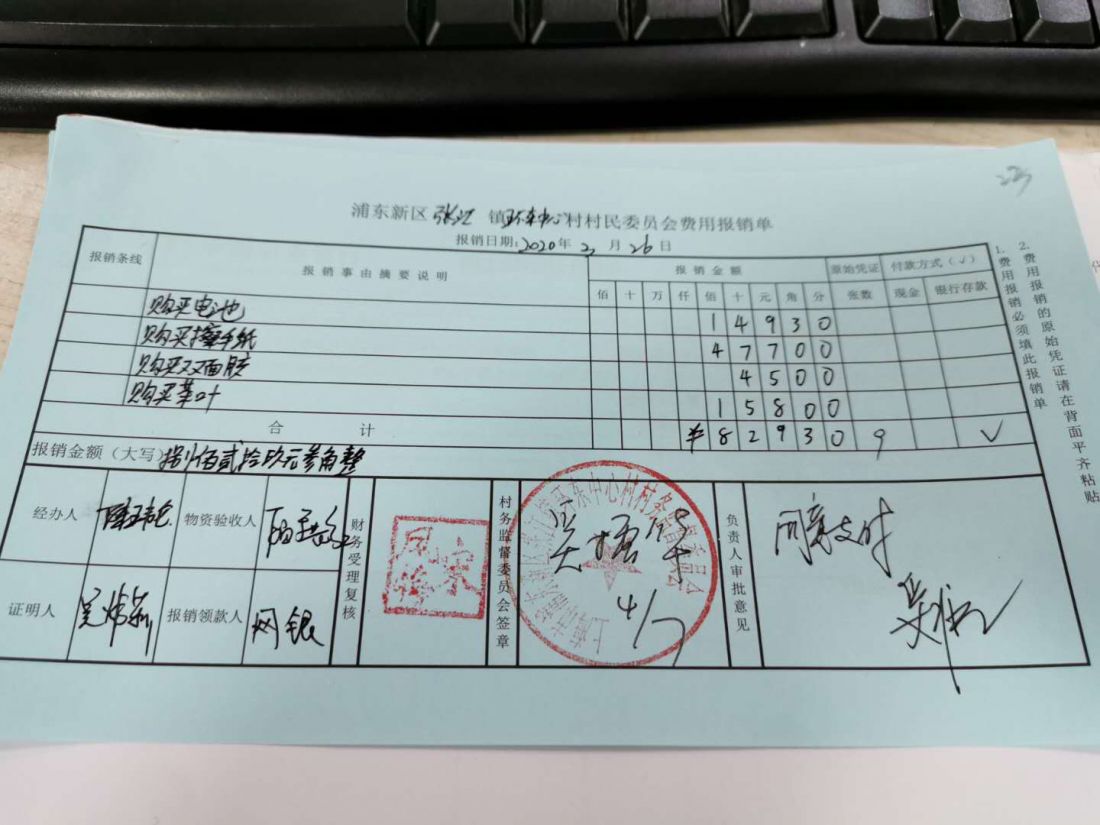 浦东新区张江镇环东中心村村民委员会费用报销单
报销日期:2020年3月26日
报销条线 报销事由摘要说明 报销金额 原始凭证 付款方式(√)
佰 十 万 仟 佰 十 元 角 分 张数 现金 银行存款
购买电池 1 4 9 3 0
购买擦手纸 4 7 7 0 0
购买双面胶 4 5 0 0
购买茶叶 1 5 8 0 0
合计 ¥ 8 2 9 3 0 9 √
报销金额(大写) 捌佰贰拾玖元叁角整
经办人 物资验收人
证明人 报销领款人 网银
财务受理复核
村务监督委员会签章
4/7
负责人审批意见 同意支付
1.费用报销必须填此报销单
2.费用报销的原始凭证请在背面平齐粘贴